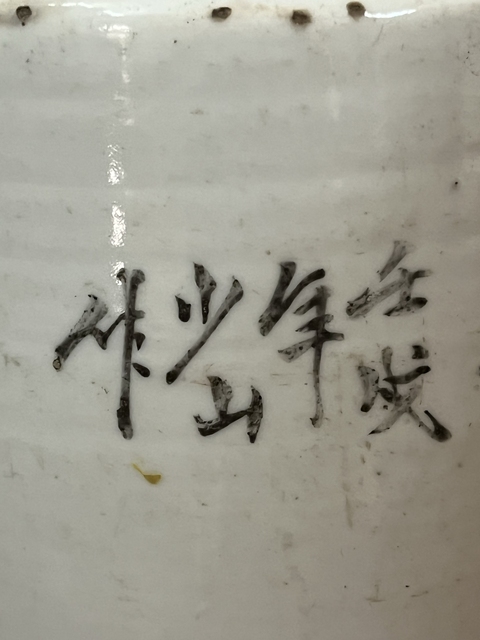 壬戌
年
少山
作